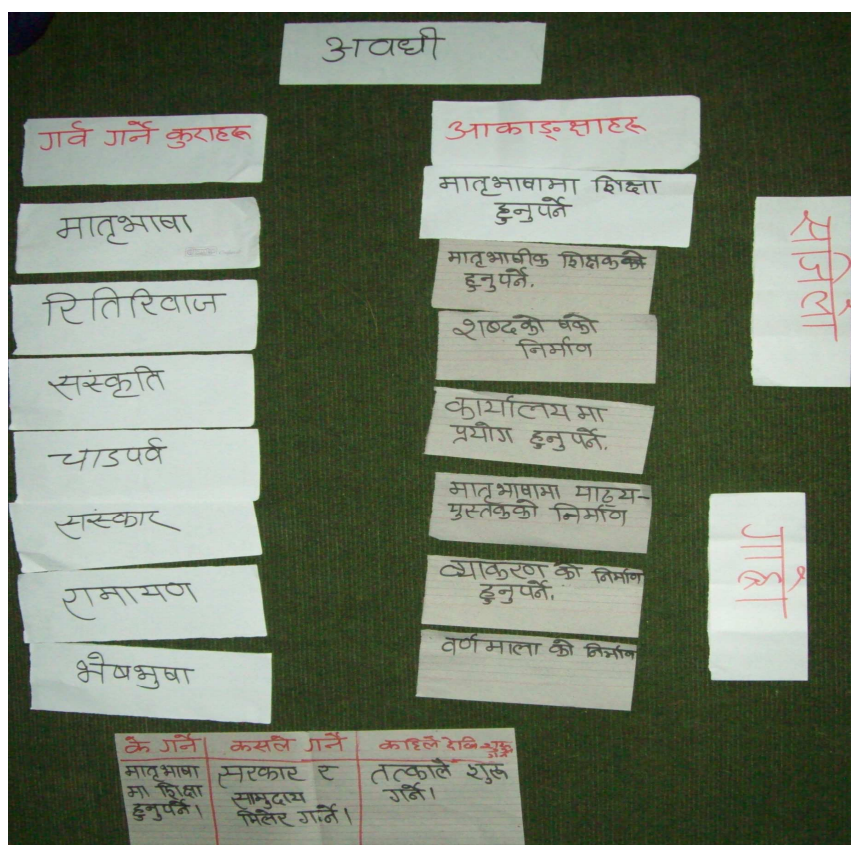 अवधी
गर्व गर्ने कुराहरू
मातृभाषा
रितिरिवाज
संस्कृति
चाडपर्व
संस्कार
रामायण
भेषभुषा
आकाङ्क्षाहरू
मातृभाषामा शिक्षा
हुनुपर्ने
मातृभाषीक शिक्षकको
हुनुपर्ने.
शब्दकोषको
निर्माण
कार्यालयमा
प्रयोग हुनुपर्ने.
मातृभाषामा पाठ्य-
पुस्तकको निर्माण
व्याकरण को निर्माण
हुनुपर्ने.
वर्णमाला को निर्माण
के गर्ने
कसले गर्ने
कहिले देखि शुरू
गर्ने
मातृभाषा
मा शिक्षा
हुनुपर्ने।
सरकार र
सामुदाय
मिलेर गर्ने।
तत्कालै शुरू
गर्ने।